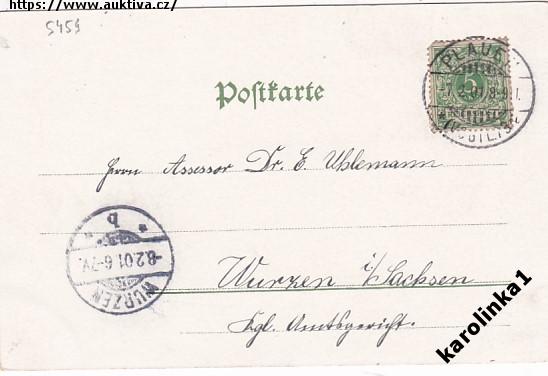 https://www.auktiva.cz/
5459
PLAUEN
5
-7.2.01.8-9V.
* (VOGTL.) 3 c
Postkarte
Herrn Assessor Dr. E. Uhlemann
b
-8.2.01.6-7V.
WURZEN
Wurzen i/Sachsen
Kgl. Amtsgericht.
karolinka1